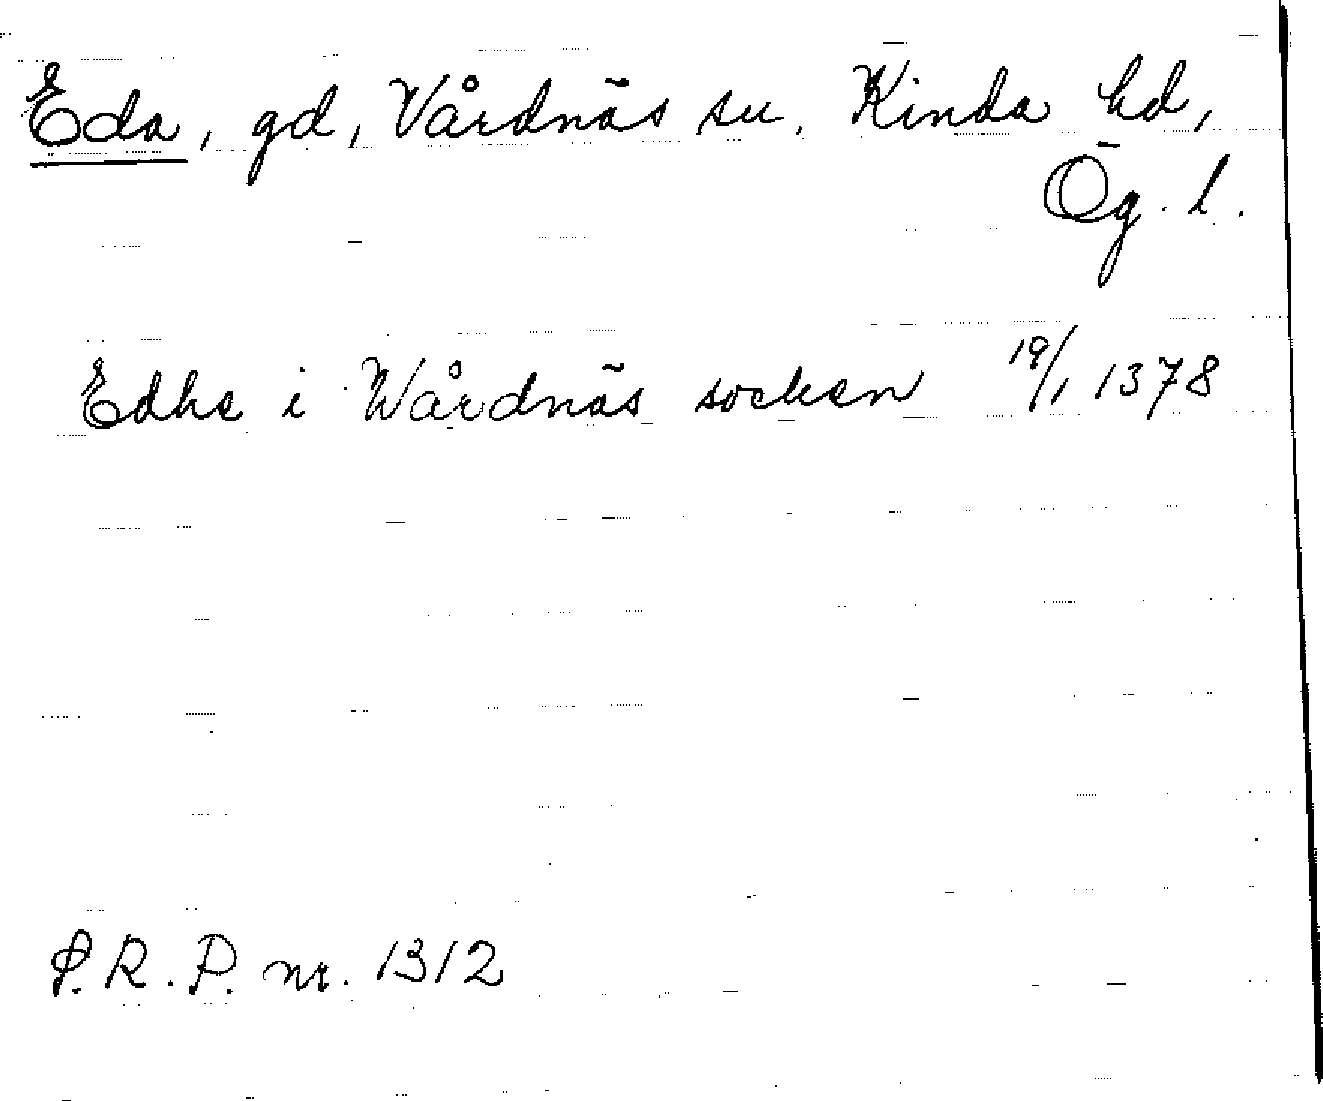 Eda, gd, Vårdnäs sn, Kinda hd,
Ög. l.
Edhe i Wårdnäs socken 19/1 1378
P.R.P. nr. 1312